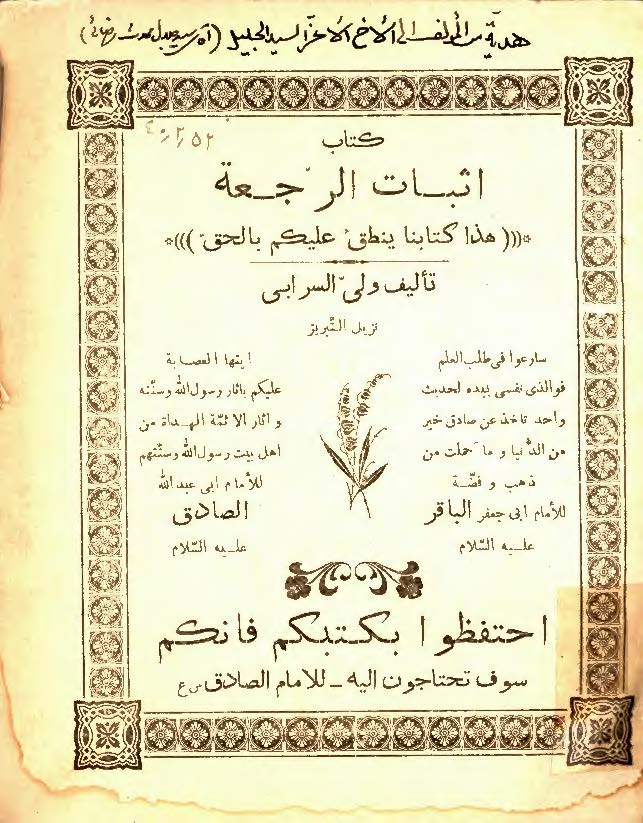 هدية من المؤلف الى الأخ الأعز السيد الجليل
كتاب
اثبات الرّجعة
*(((هذا كتابنا ينطق عليكم بالحق)))*
تأليف ولىّ السرابى
نزيل التّبريز
سارعوا فى طلب العلم
فوالذى نفسى بيده لحديث
واحد تاخذ عن صادق خير
من الدّنيا و ما حملت من
ذهب و فضّة
للأمام ابى جعفر الباقر
عليه السّلام
ايتها العصابة
عليكم باثار رسول الله وسنّته
و اثار الائمّة الهداة من
اهل بيت رسول الله وسنّتهم
للأمام ابى عبد الله
الصادق
عليه السّلام
احتفظوا بكتبكم فانكم
سوف تحتاجون اليه - للامام الصادق ع